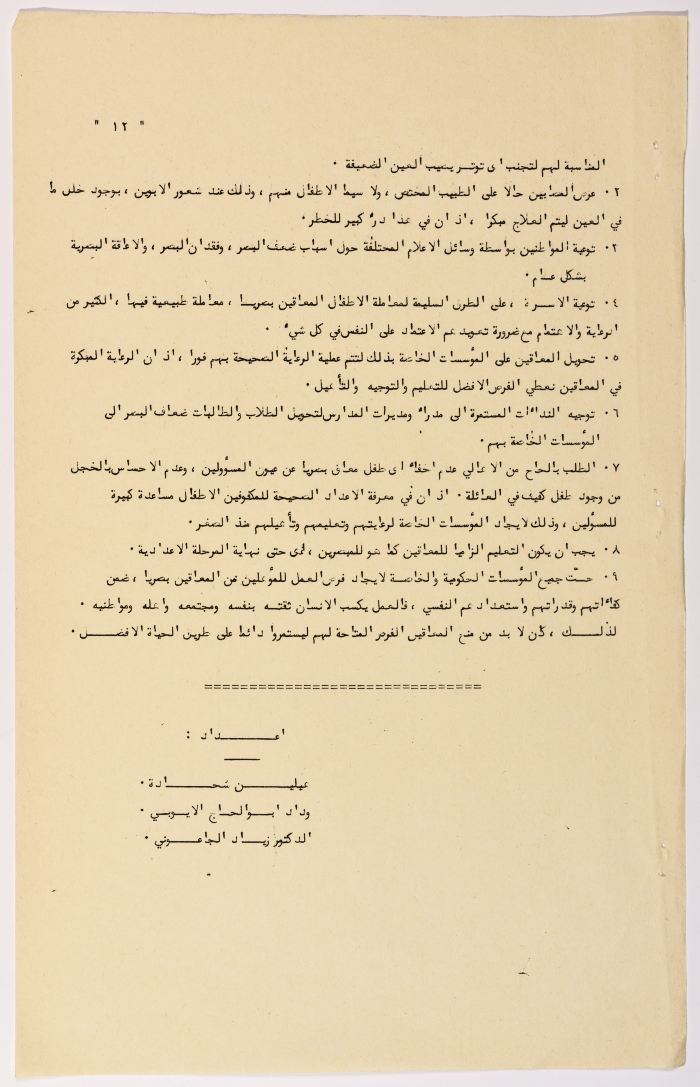 " ١٢ "
المناسبة لهم لتجنب اى توتر يصيب العين الضعيفة ٠
٢ ٠ عرض المصابين حالا على الطبيب المختص ، ولا سيما الاطفال منهم ، وذلك عند شعور الابوين ، بوجود خلل ما
في العين ليتم العلاج مبكرا ، اذ ان في هذا درءً كبير للخطر ٠
٣ ٠ توعية المواطنين بواسطة وسائل الاعلام المختلفة حول اسباب ضعف البصر ، وفقدان البصر ، والاعاقة البصرية
بشكل عام ٠
٤ ٠ توعية الاسرة ، على الطرق السليمة لمعاملة الاطفال المعاقين بصريا ، معاملة طبيعية فيها ، الكثير من
الرعاية والاهتمام مع ضرورة تعويدهم الاعتماد على النفس في كل شيء ٠
٥ ٠ تحويل المعاقين على المؤسسات الخاصة بذلك لتتم عملية الرعاية الصحيحة بهم فورا ، اذ ان الرعاية المبكرة
في المعاقين تعطي الفرص الافضل للتعليم والتوجيه والتأهيل ٠
٦ ٠ توجيه النداءات المستمرة الى مدراء ومديرات المدارس لتحويل الطلاب والطالبات ضعاف البصر الى
المؤسسات الخاصة بهم ٠
٧ ٠ الطلب بالحاح من الاهالي عدم اخفاء اى طفل معاق بصريا عن عيون المسؤولين ، وعدم الاحساس بالخجل
من وجود طفل كفيف في العائلة ٠ اذ ان في معرفة الاعداد الصحيحة للمكفوفين الاطفال مساعدة كبيرة
للمسؤلين ، وذلك لايجاد المؤسسات الخاصة لرعايتهم وتعليمهم وتأهيلهم منذ الصغر ٠
٨ ٠ يجب ان يكون التعليم الزاميا للمعاقين كما هو للمبصرين ، اى حتى نهاية المرحلة الاعدادية ٠
٩ ٠ حث جميع المؤسسات الحكومية والخاصة لايجاد فرص العمل للمؤهلين من المعاقين بصريا ، ضمن
كفاءاتهم وقدراتهم واستعدادهم النفسي ، فالعمل يكسب الانسان ثقته بنفسه ومجتمعه واهله ومواطنيه ٠
لذلك ، كان لا بد من منح المعاقين الفرص المتاحة لهم ليستمروا دائما على طريق الحياة الافضل ٠
===============================
اعداد :
شحادة ٠
وداد ابو الحاج الايوبي ٠
الدكتور زياد الجاعوني ٠